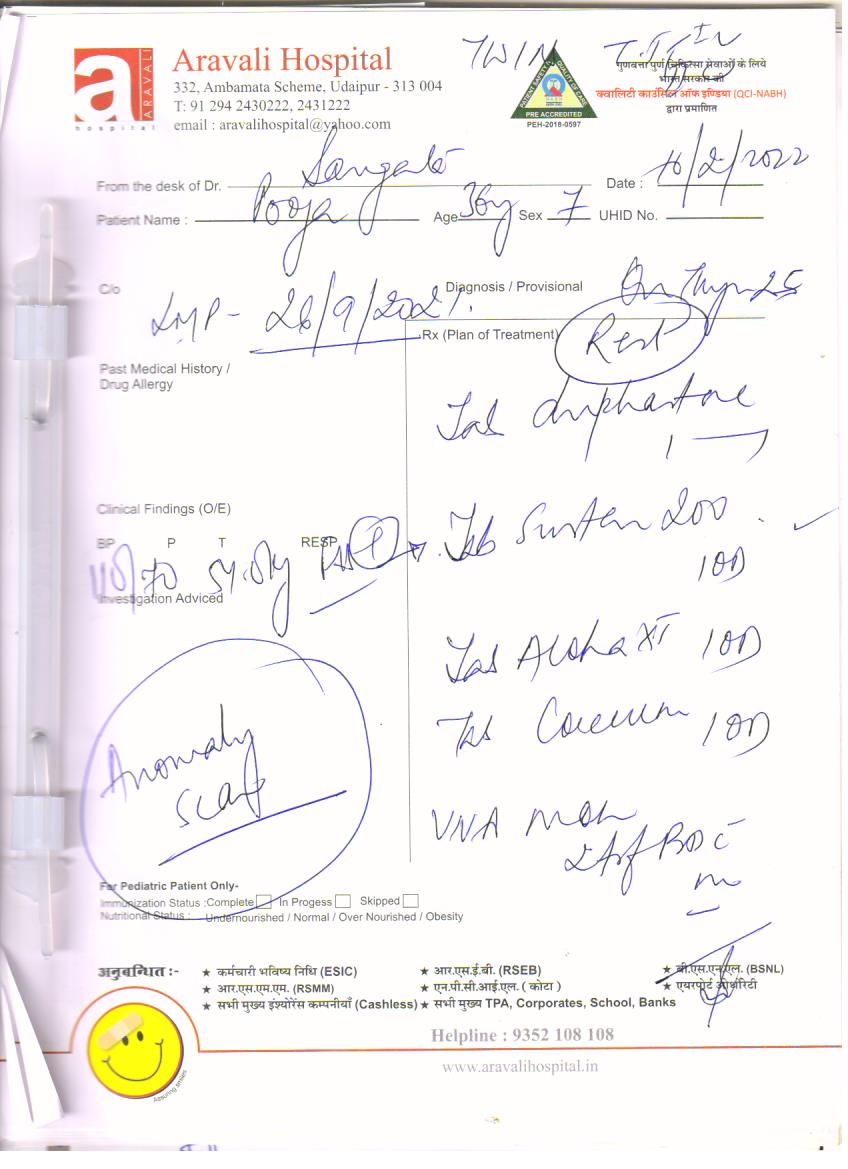 a
ARAVALI
hospital
Aravali Hospital
332, Ambamata Scheme, Udaipur - 313 004
T: 91 294 2430222, 2431222
email : aravalihospital@yahoo.com
TWIN
PATIENT SAFETY &
QUALITY OF CARE
NABH
PRE ACCREDITED
PEH-2018-0597
गुणवत्ता पूर्ण चिकित्सा सेवाओं के लिये
भारत सरकार की
क्वालिटी काउंसिल ऑफ इण्डिया (QCI-NABH)
द्वारा प्रमाणित
From the desk of Dr.
Date : /2/2022
Patient Name : Pooja Age 36y Sex F UHID No.
C/o
Diagnosis / Provisional
LMP - 26/9/2021
Rx (Plan of Treatment) Rest
Past Medical History /
Drug Allergy
Tab duphastone
1
Clinical Findings (O/E)
BP P T RESP
110/70
Tab Susten 200
1 OD
Investigation Adviced
Tab 1 OD
Anomaly
scan
Tab 1 OD
For Pediatric Patient Only-
Immunization Status : Complete In Progess Skipped
Nutritional Status : Undernourished / Normal / Over Nourished / Obesity
अनुबन्धित :-
★ कर्मचारी भविष्य निधि (ESIC) ★ आर.एस.ई.बी. (RSEB) ★ बी.एस.एन.एल. (BSNL)
★ आर.एस.एम.एम. (RSMM) ★ एन.पी.सी.आई.एल. ( कोटा ) ★ एयरपोर्ट ऑथोरिटी
★ सभी मुख्य इंश्योरेंस कम्पनीयाँ (Cashless) ★ सभी मुख्य TPA, Corporates, School, Banks
Helpline : 9352 108 108
www.aravalihospital.in
Assuring smiles